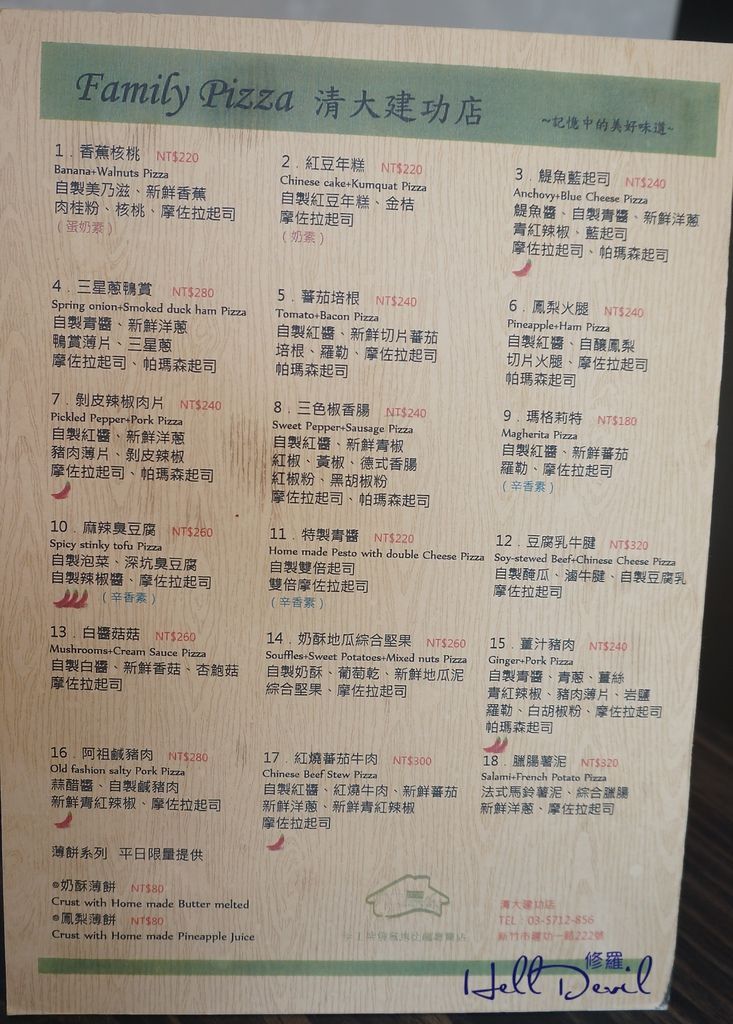 Family Pizza 清大建功店 ~記憶中的美好味道~
1. 香蕉核桃 NT$220
Banana+Walnuts Pizza
自製美乃滋、新鮮香蕉
肉桂粉、核桃、摩佐拉起司
(蛋奶素)
2. 紅豆年糕 NT$220
Chinese cake+Kumquat Pizza
自製紅豆年糕、金桔
摩佐拉起司
(奶素)
3. 鯷魚藍起司 NT$240
Anchovy+Blue Cheese Pizza
鯷魚醬、自製青醬、新鮮洋蔥
青紅辣椒、藍起司
摩佐拉起司、帕瑪森起司
4. 三星蔥鴨賞 NT$280
Spring onion+Smoked duck ham Pizza
自製青醬、新鮮洋蔥
鴨賞薄片、三星蔥
摩佐拉起司、帕瑪森起司
5. 蕃茄培根 NT$240
Tomato+Bacon Pizza
自製紅醬、新鮮切片蕃茄
培根、羅勒、摩佐拉起司
帕瑪森起司
6. 鳳梨火腿 NT$240
Pineapple+Ham Pizza
自製紅醬、自釀鳳梨
切片火腿、摩佐拉起司
帕瑪森起司
7. 剝皮辣椒肉片 NT$240
Pickled Pepper+Pork Pizza
自製紅醬、新鮮洋蔥
豬肉薄片、剝皮辣椒
摩佐拉起司、帕瑪森起司
8. 三色椒香腸 NT$240
Sweet Pepper+Sausage Pizza
自製紅醬、新鮮青椒
紅椒、黃椒、德式香腸
紅椒粉、黑胡椒粉
摩佐拉起司、帕瑪森起司
9. 瑪格莉特 NT$180
Magherita Pizza
自製紅醬、新鮮蕃茄
羅勒、摩佐拉起司
(辛香素)
10. 麻辣臭豆腐 NT$260
Spicy stinky tofu Pizza
自製泡菜、深坑臭豆腐
自製辣椒醬、摩佐拉起司
(辛香素)
11. 特製青醬 NT$220
Home made Pesto with double Cheese Pizza
自製雙倍起司
雙倍摩佐拉起司
(辛香素)
12. 豆腐乳牛腱 NT$320
Soy-stewed Beef+Chinese Cheese Pizza
自製醃瓜、滷牛腱、自製豆腐乳
摩佐拉起司
13. 白醬菇菇 NT$260
Mushrooms+Cream Sauce Pizza
自製白醬、新鮮香菇、杏鮑菇
摩佐拉起司
14. 奶酥地瓜綜合堅果 NT$260
Souffles+Sweet Potatoes+Mixed nuts Pizza
自製奶酥、葡萄乾、新鮮地瓜泥
綜合堅果、摩佐拉起司
15. 薑汁豬肉 NT$240
Ginger+Pork Pizza
自製青醬、青蔥、薑絲
青紅辣椒、豬肉薄片、岩鹽
羅勒、白胡椒粉、摩佐拉起司
帕瑪森起司
16. 阿祖鹹豬肉 NT$280
Old fashion salty Pork Pizza
蒜醋醬、自製鹹豬肉
新鮮青紅辣椒、摩佐拉起司
17. 紅燒蕃茄牛肉 NT$300
Chinese Beef Stew Pizza
自製紅醬、紅燒牛肉、新鮮蕃茄
新鮮洋蔥、新鮮青紅辣椒
摩佐拉起司
18. 臘腸薯泥 NT$320
Salami+French Potato Pizza
法式馬鈴薯泥、綜合臘腸
新鮮洋蔥、摩佐拉起司
薄餅系列 平日限量提供
◎奶酥薄餅 NT$80
Crust with Home made Butter melted
◎鳳梨薄餅 NT$80
Crust with Home made Pineapple Juice
清大建功店
TEL: 03-5712-856
新竹市建功一路222號
修羅
Hell Devil